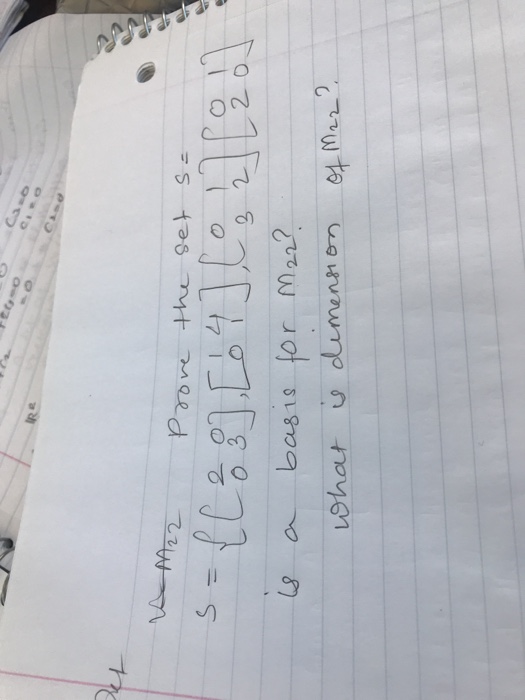 Prove the set S =
S = { [ 2 0 0 3 ], [ 1 4 0 1 ], [ 0 1 3 2 ] [ 0 1 2 0 ]
is a basis for M22?
what is dimension of M22?